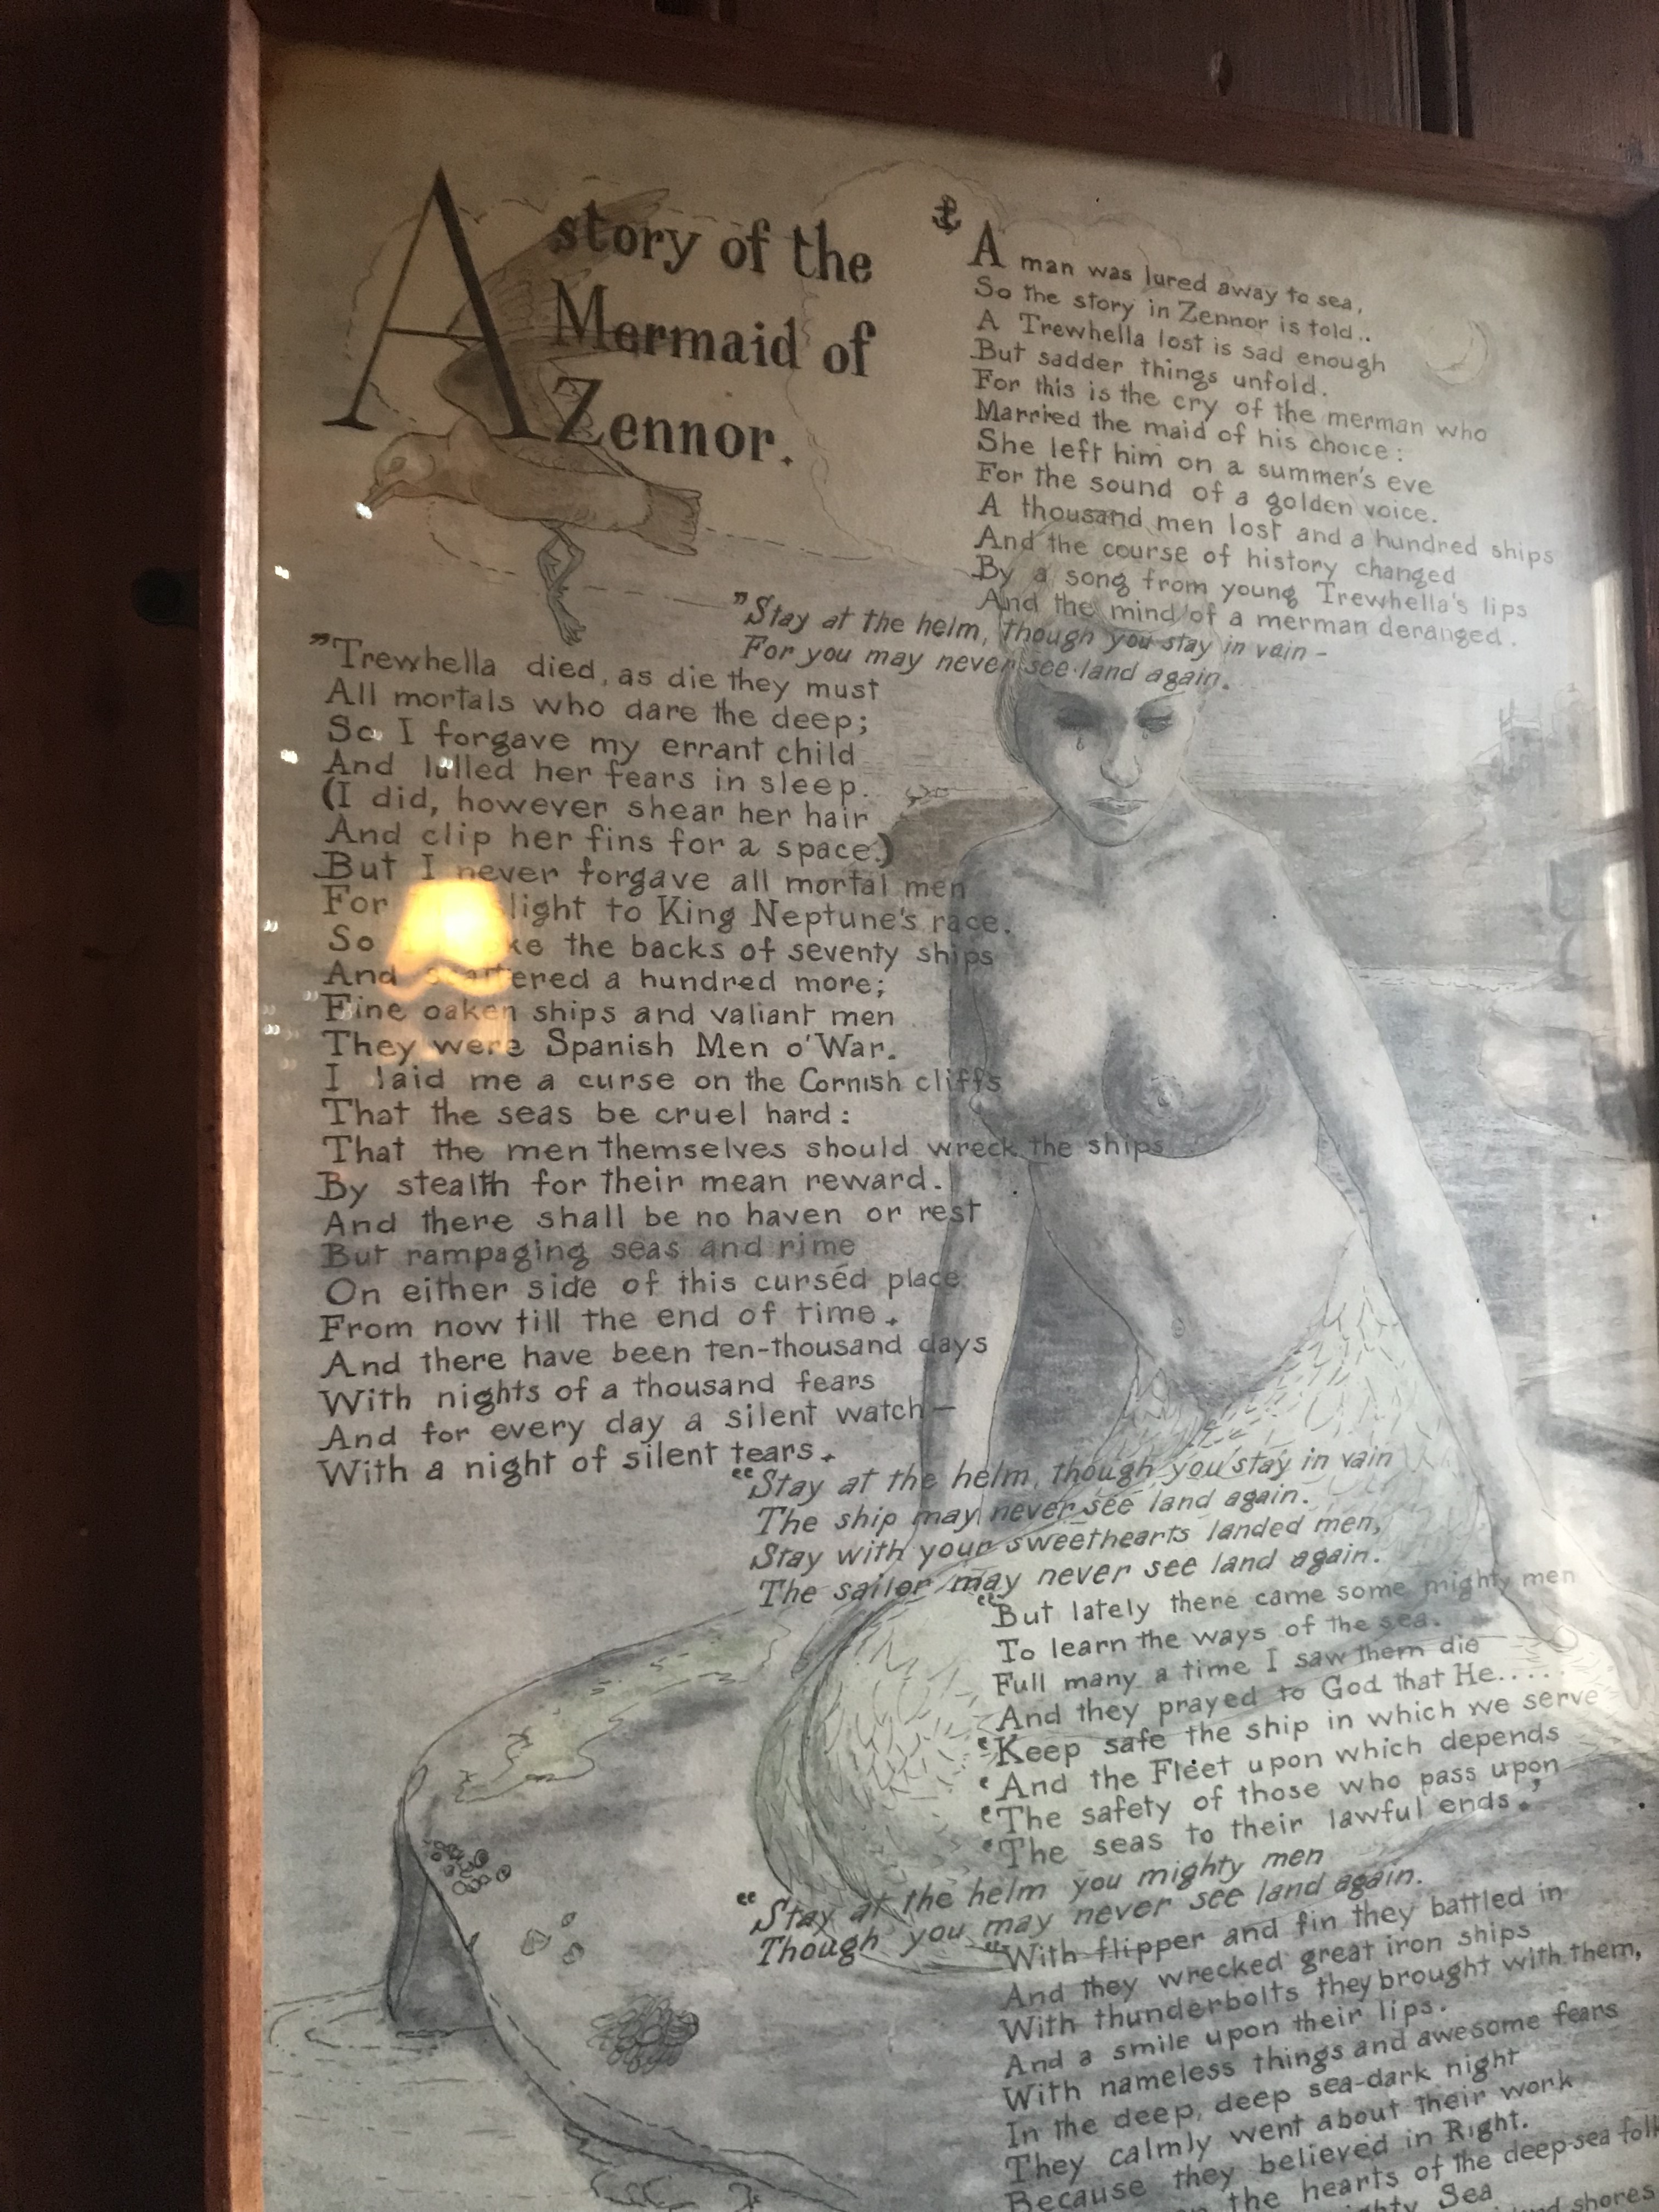 A story of the
Mermaid of
Zennor.
A man was lured away to sea,
So the story in Zennor is told..
A Trewhella lost is sad enough
But sadder things unfold.
For this is the cry of the merman who
Married the maid of his choice:
She left him on a summer's eve
For the sound of a golden voice.
A thousand men lost and a hundred ships
And the course of history changed
By a song from young Trewhella's lips
And the mind of a merman deranged.
"Stay at the helm, though you stay in vain -
For you may never see land again.
"Trewhella died, as die they must
All mortals who dare the deep;
So I forgave my errant child
And lulled her fears in sleep.
(I did, however shear her hair
And clip her fins for a space.)
But I never forgave all mortal men
For light to King Neptune's race.
So the backs of seventy ships
And scattered a hundred more;
Fine oaken ships and valiant men
They were Spanish Men o'War.
I laid me a curse on the Cornish cliffs
That the seas be cruel hard:
That the men themselves should wreck the ships
By stealth for their mean reward.
And there shall be no haven or rest
But rampaging seas and rime
On either side of this curséd place
From now till the end of time.
And there have been ten-thousand days
With nights of a thousand fears
And for every day a silent watch—
With a night of silent tears.
"Stay at the helm, though you stay in vain
The ship may never see land again.
Stay with your sweethearts landed men,
The sailor may never see land again.
"But lately there came some mighty men
To learn the ways of the sea.
Full many a time I saw them die
And they prayed to God that He.....
'Keep safe the ship in which we serve
'And the Fleet upon which depends
'The safety of those who pass upon
'The seas to their lawful ends.'
"Stay at the helm you mighty men
Though you may never see land again.
"With flipper and fin they battled in
And they wrecked great iron ships
With thunderbolts they brought with them,
And a smile upon their lips.
With nameless things and awesome fears
In the deep, deep sea-dark night
They calmly went about their work
Because they believed in Right.
the hearts of the deep-sea folk
Sea
shores